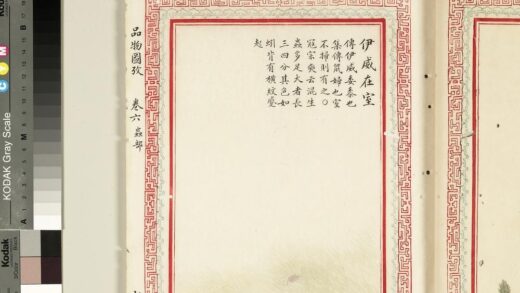 伊威在室
傳伊威委黍也
集傳鼠婦也室
不掃則有之〇
冠宗奭云湿生
蟲多足大者長
三四分其色如
蚓背有橫紋蹙
起
品物圖攷 卷六 蟲部
KODAK Gray Scale
Kodak
C
M
A
M
B